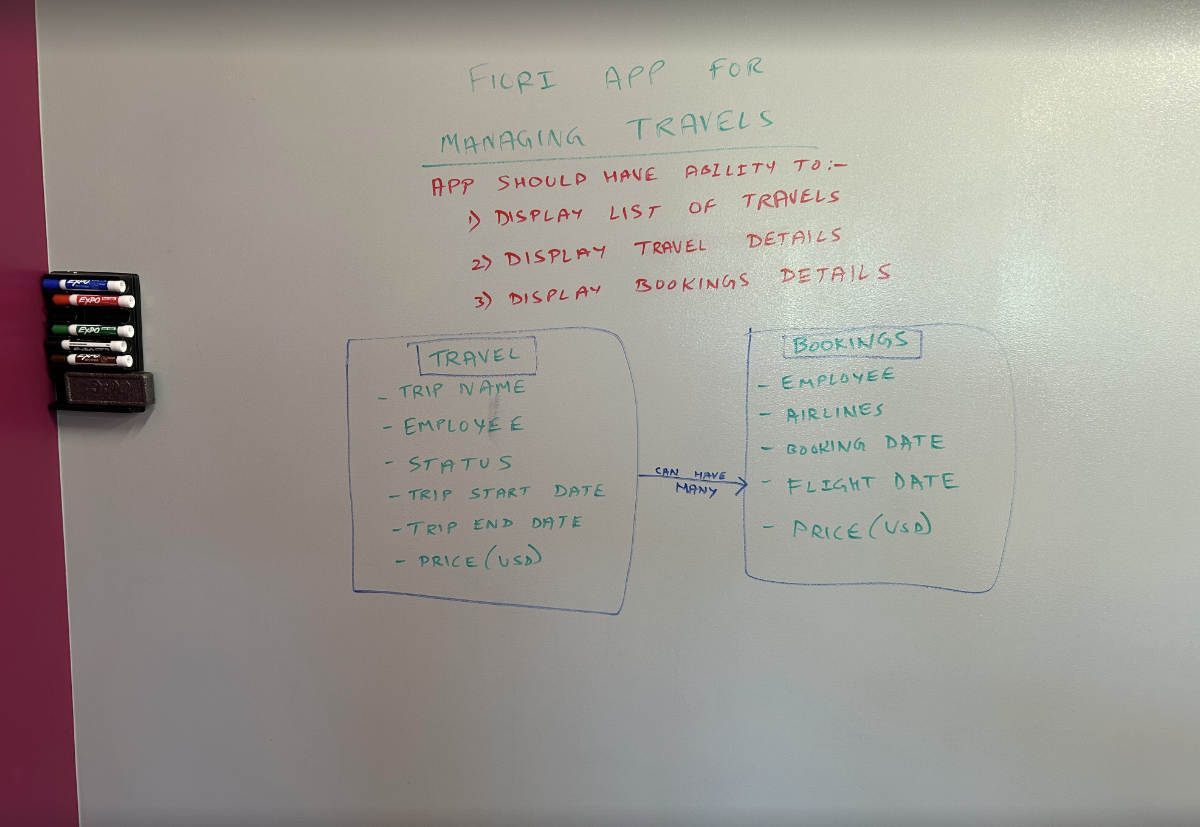 FIORI APP FOR
MANAGING TRAVELS
APP SHOULD HAVE ABILITY TO:-
1) DISPLAY LIST OF TRAVELS
2) DISPLAY TRAVEL DETAILS
3) DISPLAY BOOKINGS DETAILS
TRAVEL
- TRIP NAME
- EMPLOYEE
- STATUS
- TRIP START DATE
- TRIP END DATE
- PRICE (USD)
CAN HAVE
MANY
BOOKINGS
- EMPLOYEE
- AIRLINES
- BOOKING DATE
- FLIGHT DATE
- PRICE (USD)
EXPO
EXPO
EXPO
EXPO
EXPO